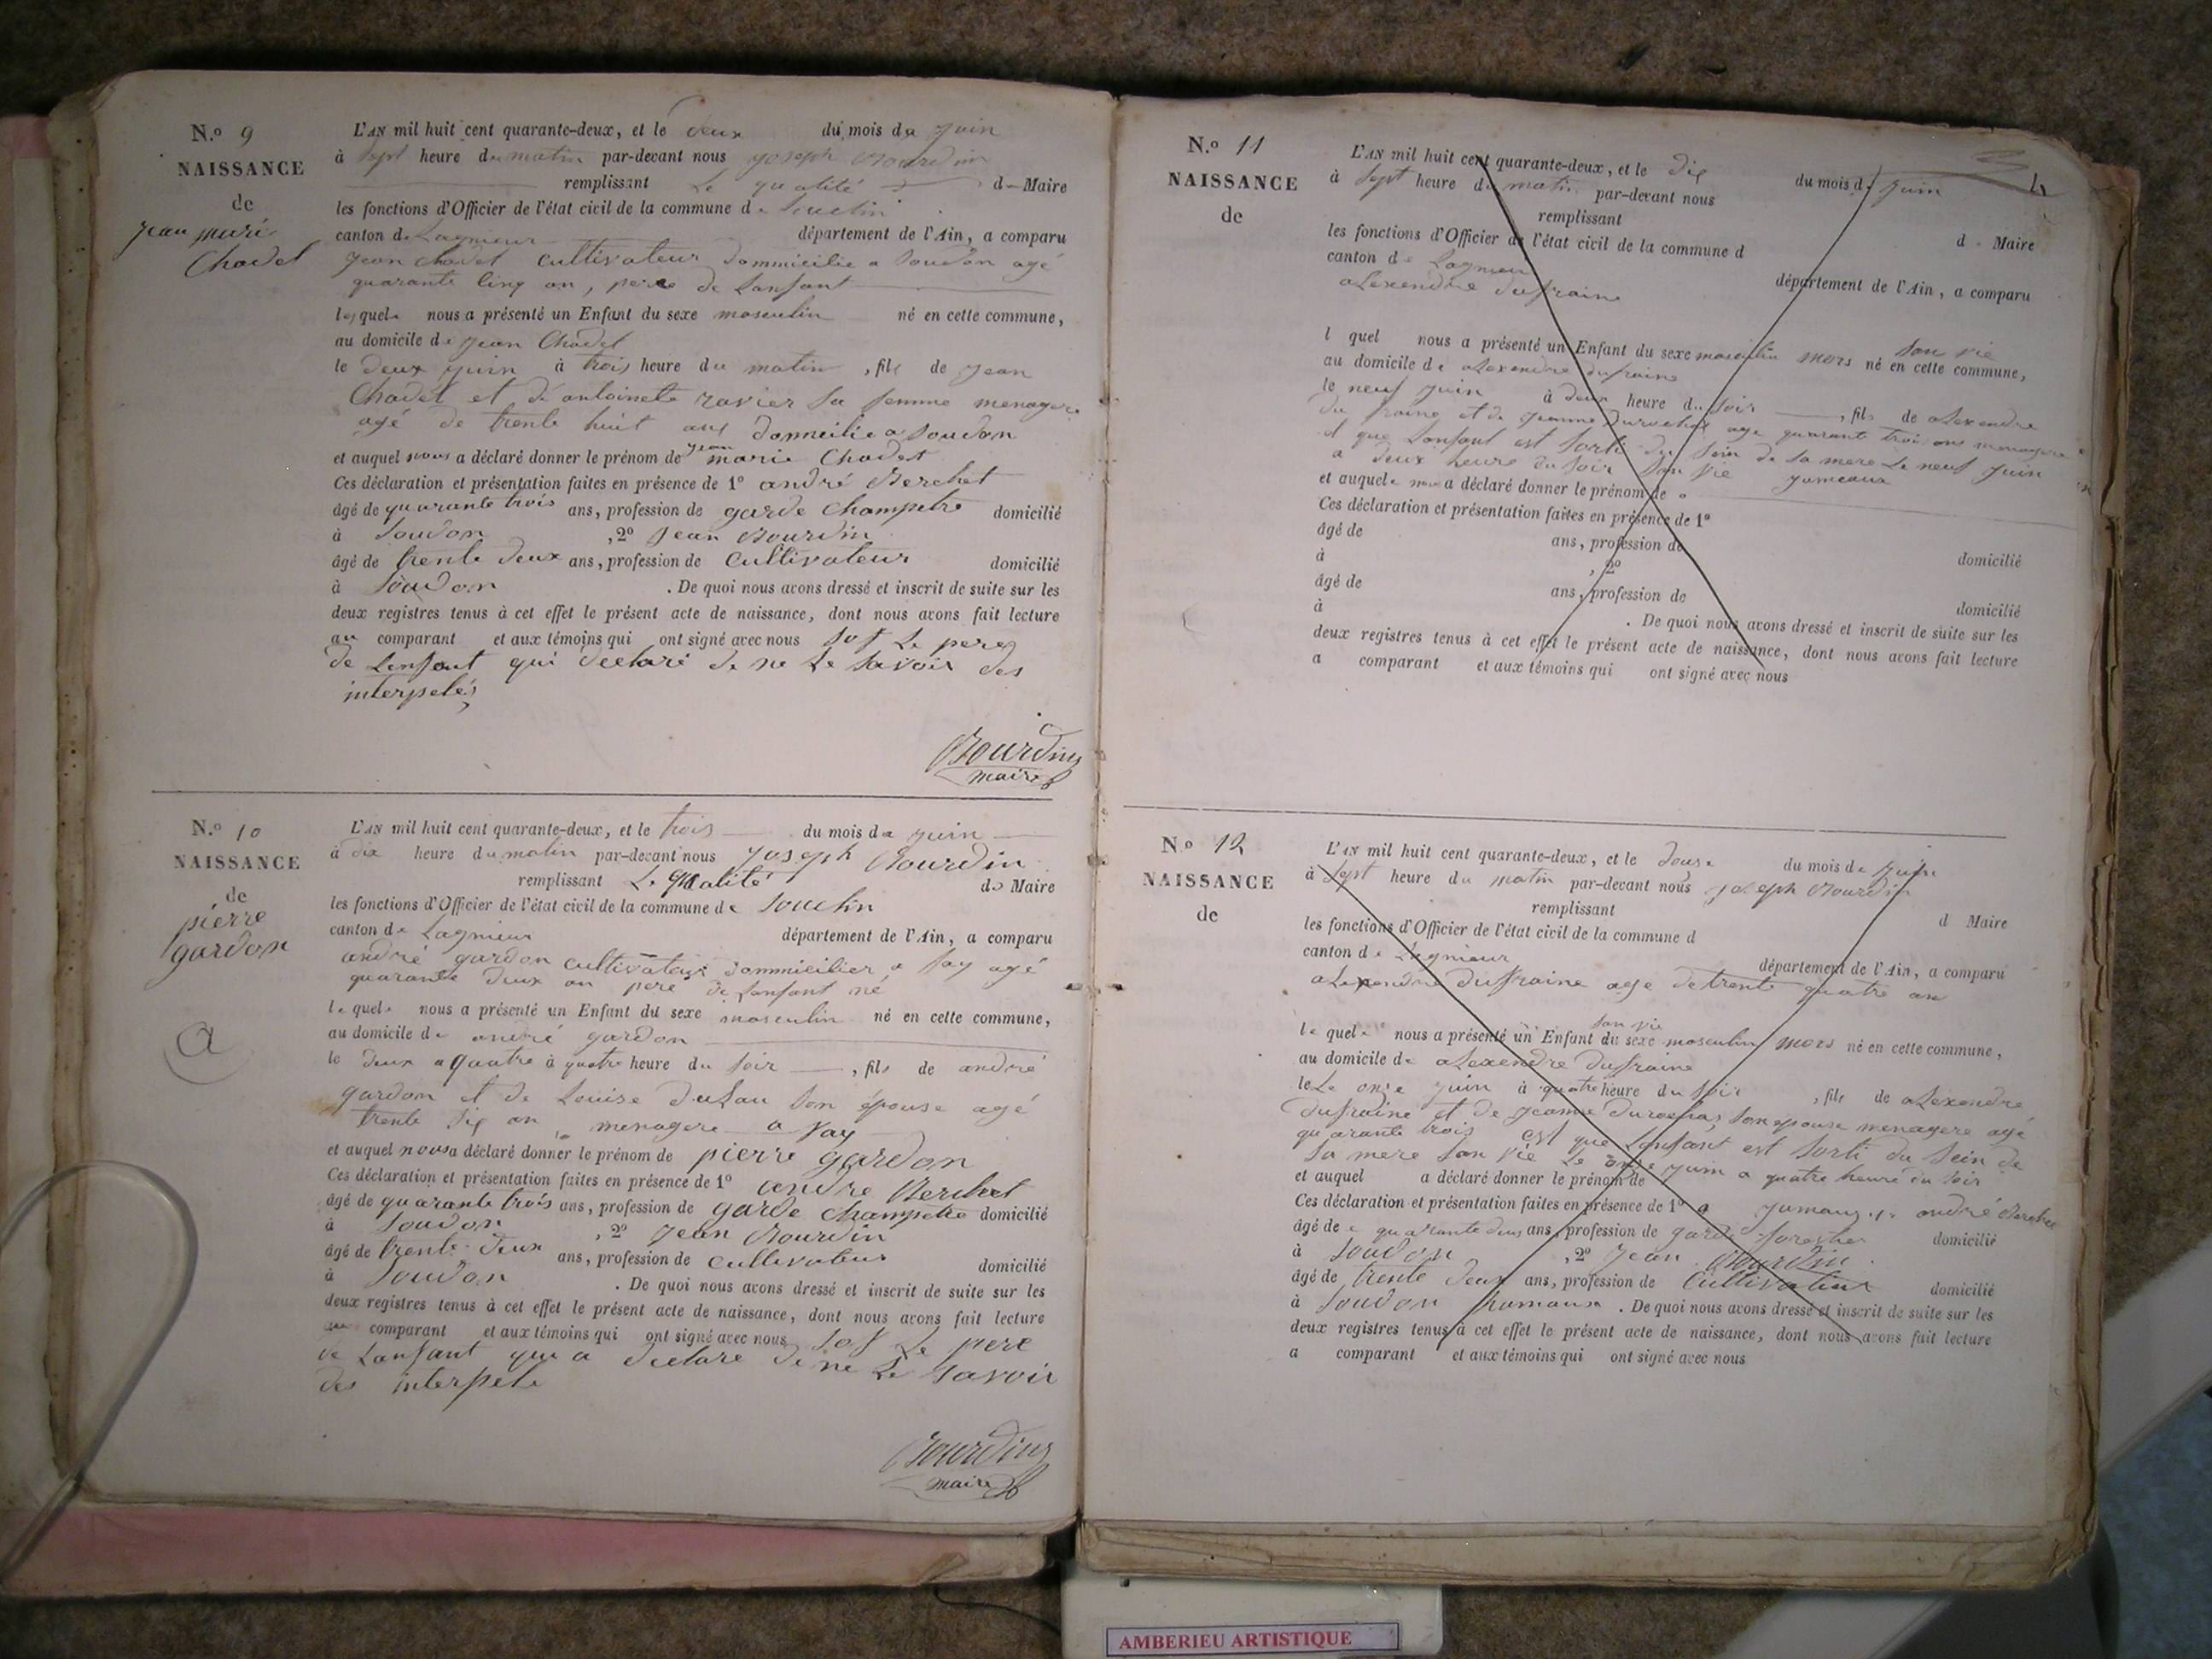 N.o 9
NAISSANCE
de
jean marie
Chadet
L'AN mil huit cent quarante-deux, et le deux du mois de juin
à sept heure du matin par-devant nous joseph Bourdin
remplissant Le qualité d Maire
les fonctions d'Officier de l'état civil de la commune de Souclin
canton de Lagnieur département de l'Ain, a comparu
jean chadet cultivateur dommicilie a Soudon agé
quarante cinq an, pere de Lanfant
lequel nous a présenté un Enfant du sexe masculin né en cette commune,
au domicile de jean Chadet
le deux juin à trois heure du matin, fils de jean
Chadet et de antoinete ravier sa femme menagere
agé de trente huit ans domicilie a Soudon
et auquel nous a déclaré donner le prénom de jean marie Chadet
Ces déclaration et présentation faites en présence de 1o andré Berchet
âgé de quarante trois ans, profession de garde Champetre domicilié
à Soudon, 2o jean Bourdin
âgé de trente deux ans, profession de Cultivateur domicilié
à Soudon. De quoi nous avons dressé et inscrit de suite sur les
deux registres tenus à cet effet le présent acte de naissance, dont nous avons fait lecture
au comparant et aux témoins qui ont signé avec nous sof Le pere
de Lenfant qui declaré de ne Le Savoir des
interpelés
Bourdin
maire
N.o 10
NAISSANCE
de
pierre
gardon
a
L'AN mil huit cent quarante-deux, et le trois du mois de juin
à dix heure du matin par-devant nous joseph Bourdin
remplissant Le qualité de Maire
les fonctions d'Officier de l'état civil de la commune de Souclin
canton de Lagnieur département de l'Ain, a comparu
andré gardon cultivateur dommicilier a fay agé
quarante deux an pere de Lanfant né
le quel nous a présenté un Enfant du sexe masculin né en cette commune,
au domicile de andré gardon
le deux a quatre à quatre heure du soir, fils de andré
gardon et de Louise dulau son épouse agé
trente six an menagere a fay
et auquel nous a déclaré donner le prénom de pierre gardon
Ces déclaration et présentation faites en présence de 1o andre Berchet
âgé de quarante trois ans, profession de garde Champetre domicilié
à Soudon, 2o jean Bourdin
âgé de trente deux ans, profession de Cultivateur domicilié
à Soudon. De quoi nous avons dressé et inscrit de suite sur les
deux registres tenus à cet effet le présent acte de naissance, dont nous avons fait lecture
au comparant et aux témoins qui ont signé avec nous sof Le pere
de Lanfant qui a declare de ne Le savoir
des interpele
Bourdin
maire
N.o 11
NAISSANCE
de
L'AN mil huit cent quarante-deux, et le dix du mois de juin
à Sept heure du matin par-devant nous
remplissant d Maire
les fonctions d'Officier de l'état civil de la commune d
canton de Lagnieur département de l'Ain, a comparu
aLexendre dufraine
l quel nous a présenté un Enfant du sexe masculin mors san vie né en cette commune,
au domicile de aLexendre dufraine
le neuf juin à deux heure du soir, fils de aLexendre
du fraine et de jeanne durochat age quarante trois ans menagere
et que Lanfant est sorti du sein de sa mere Le neuf juin
a deux heure du soir san vie jumeaux
et auquel a déclaré donner le prénom de
Ces déclaration et présentation faites en présence de 1o
âgé de ans, profession de domicilié
à, 2o
âgé de ans, profession de domicilié
à. De quoi nous avons dressé et inscrit de suite sur les
deux registres tenus à cet effet le présent acte de naissance, dont nous avons fait lecture
a comparant et aux témoins qui ont signé avec nous
N.o 12
NAISSANCE
de
L'AN mil huit cent quarante-deux, et le douse du mois de juin
à Sept heure du matin par-devant nous joseph Bourdin
remplissant d Maire
les fonctions d'Officier de l'état civil de la commune d
canton de Lagnieur département de l'Ain, a comparu
aLexendre dufraine age de trente quatre an
le quel nous a présenté un Enfant du sexe san vie masculin mors né en cette commune,
au domicile de aLexendre dufraine
le Le onse juin à quatre heure du soir, fils de aLexendre
dufraine et de jeanne durochat son épouse menagere agé
quarante trois est que Lanfant est sorti du sein de
sa mere san vie Le onse juin a quatre heure du soir
et auquel a déclaré donner le prénom de
Ces déclaration et présentation faites en présence de 1o jumaux andré Berchet
âgé de quarante deux ans, profession de garde forestier domicilié
à Soudon, 2o jean Bourdin
âgé de trente deux ans, profession de Cultivateur domicilié
à Soudon. De quoi nous avons dressé et inscrit de suite sur les
deux registres tenus à cet effet le présent acte de naissance, dont nous avons fait lecture
a comparant et aux témoins qui ont signé avec nous
AMBERIEU ARTISTIQUE